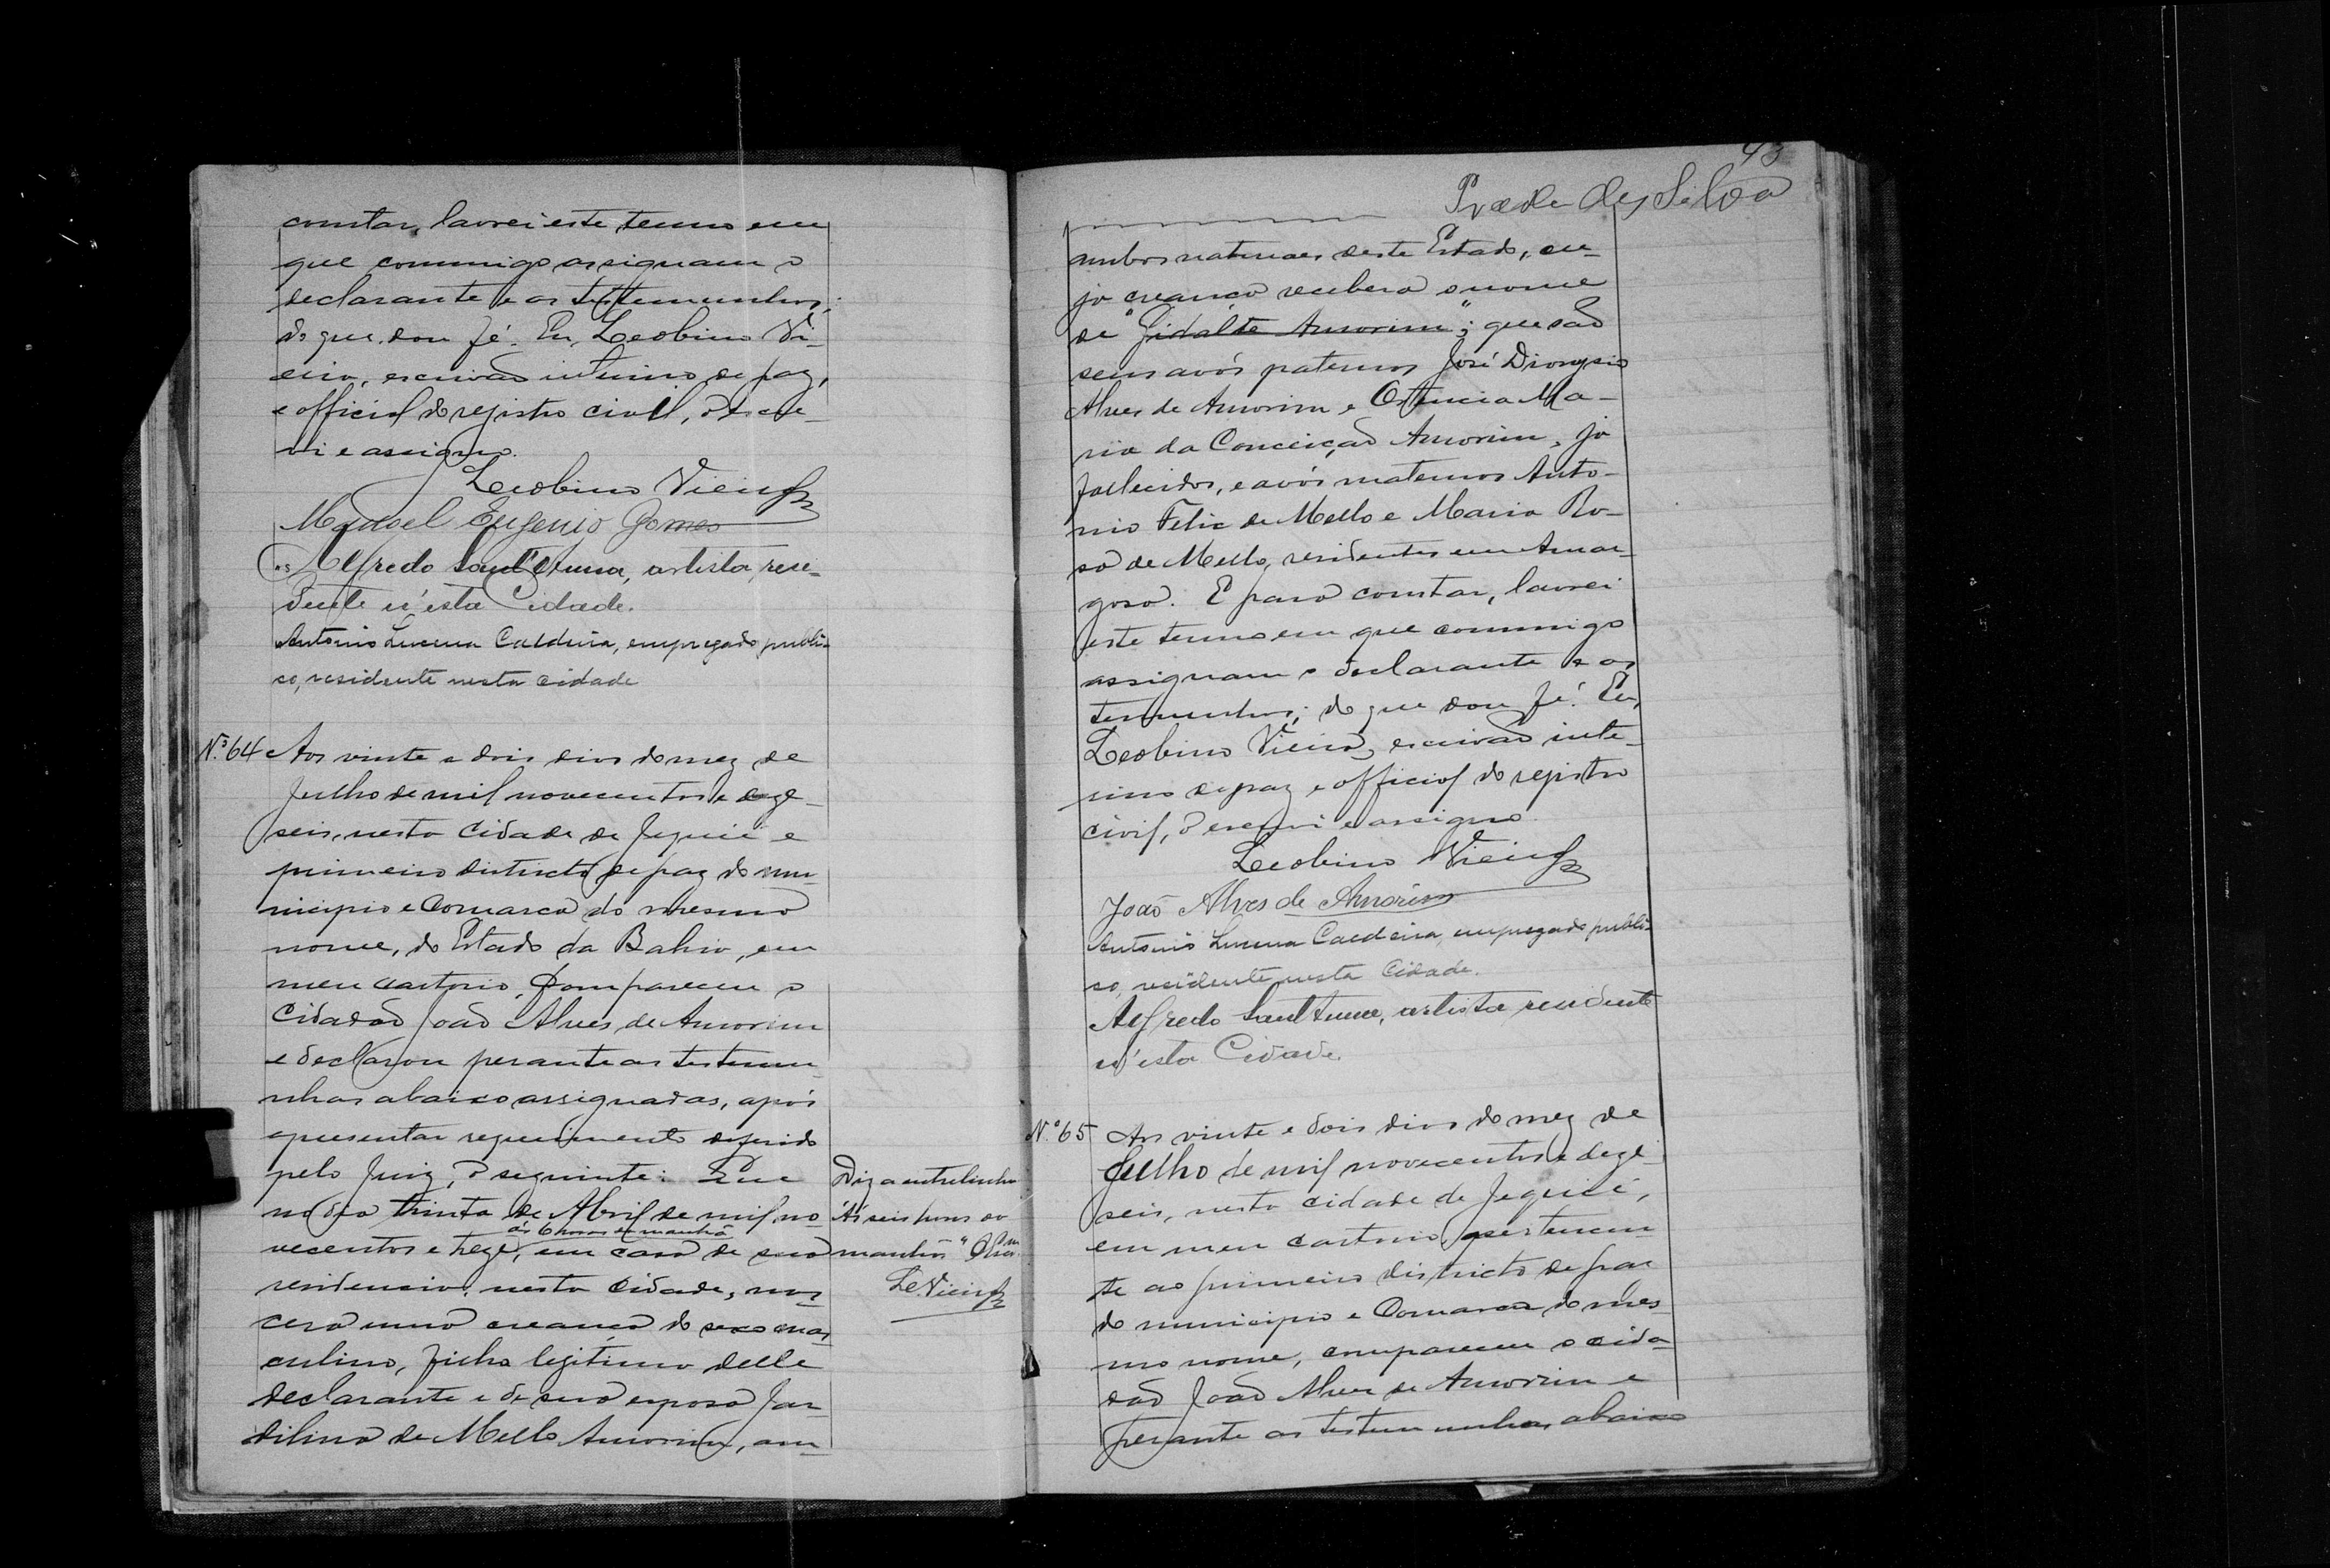 constar, lavrei este termo em
que commigo assignam o
declarante e as testemunhas;
do que dou fé. Eu, Leobino Vi-
eira, escrivão interino de paz,
e official do registro civil, o escre-
vi e assigno.
Leobino Vieira
Manoel Eugenio Gomes
Alfredo Sant'Anna, artista, resi-
dente n'esta Cidade.
Antonio Lucena Caldeira, empregado publi-
co, residente nesta cidade
Nº 64 Aos vinte e dois dias do mez de
Julho de mil novecentos e deze-
seis, nesta Cidade de Jequié e
primeiro districto de paz do mu-
nicipio e Comarca do mesmo
nome, do Estado da Bahia, em
meu cartorio, Compareceu o
Cidadão João Alves de Amorim
e declarou perante as testemu-
nhas abaixo assignadas, após
apresentar requerimento deferido
pelo Juiz, o seguinte: Que
no dia trinta de Abril de mil no-
ás 6 horas da manhã
vecentos e treze, em casa de sua
residencia, nesta cidade, nas-
cera uma creança do sexo mas-
culino, filho legitimo delle
declarante e de sua esposa Jar-
dilina de Mello Amorim, am-
Diz a entrelinha
"Ás seis horas da
manhã"
L. Vieira
43
Prædes Silva
ambos naturaes deste Estado, cu-
ja creança recebera o nome
de "Gidalte Amorim"; que são
seus avós paternos José Dionysio
Alves de Amorim e Ortencia Ma-
ria da Conceição Amorim, já
fallecidos, e avós maternos Anto-
nio Felix de Mello e Maria Ro-
sa de Mello, residentes em Amar-
gosa. E para constar, lavrei
este termo em que commigo
assignam o declarante e as
temunhas; do que dou fé. Eu,
Leobino Vieira, escrivão inte-
rino de paz e official do registro
civil, o escrevi e assigno.
Leobino Vieira
João Alves de Amorim
Antonio Lucena Caldeira, empregado publi-
co, residente nesta Cidade.
Alfredo Sant'Anna, artista residente
n'esta Cidade.
Nº 65 Aos vinte e dois dias do mez de
Julho de mil novecentos e deze-
seis, nesta cidade de Jequié,
em meu cartorio, pertencen-
te ao primeiro districto de paz
do municipio e Comarca do mes-
mo nome, compareceu o cida-
dão João Alves de Amorim e
perante as testemunhas abaixo